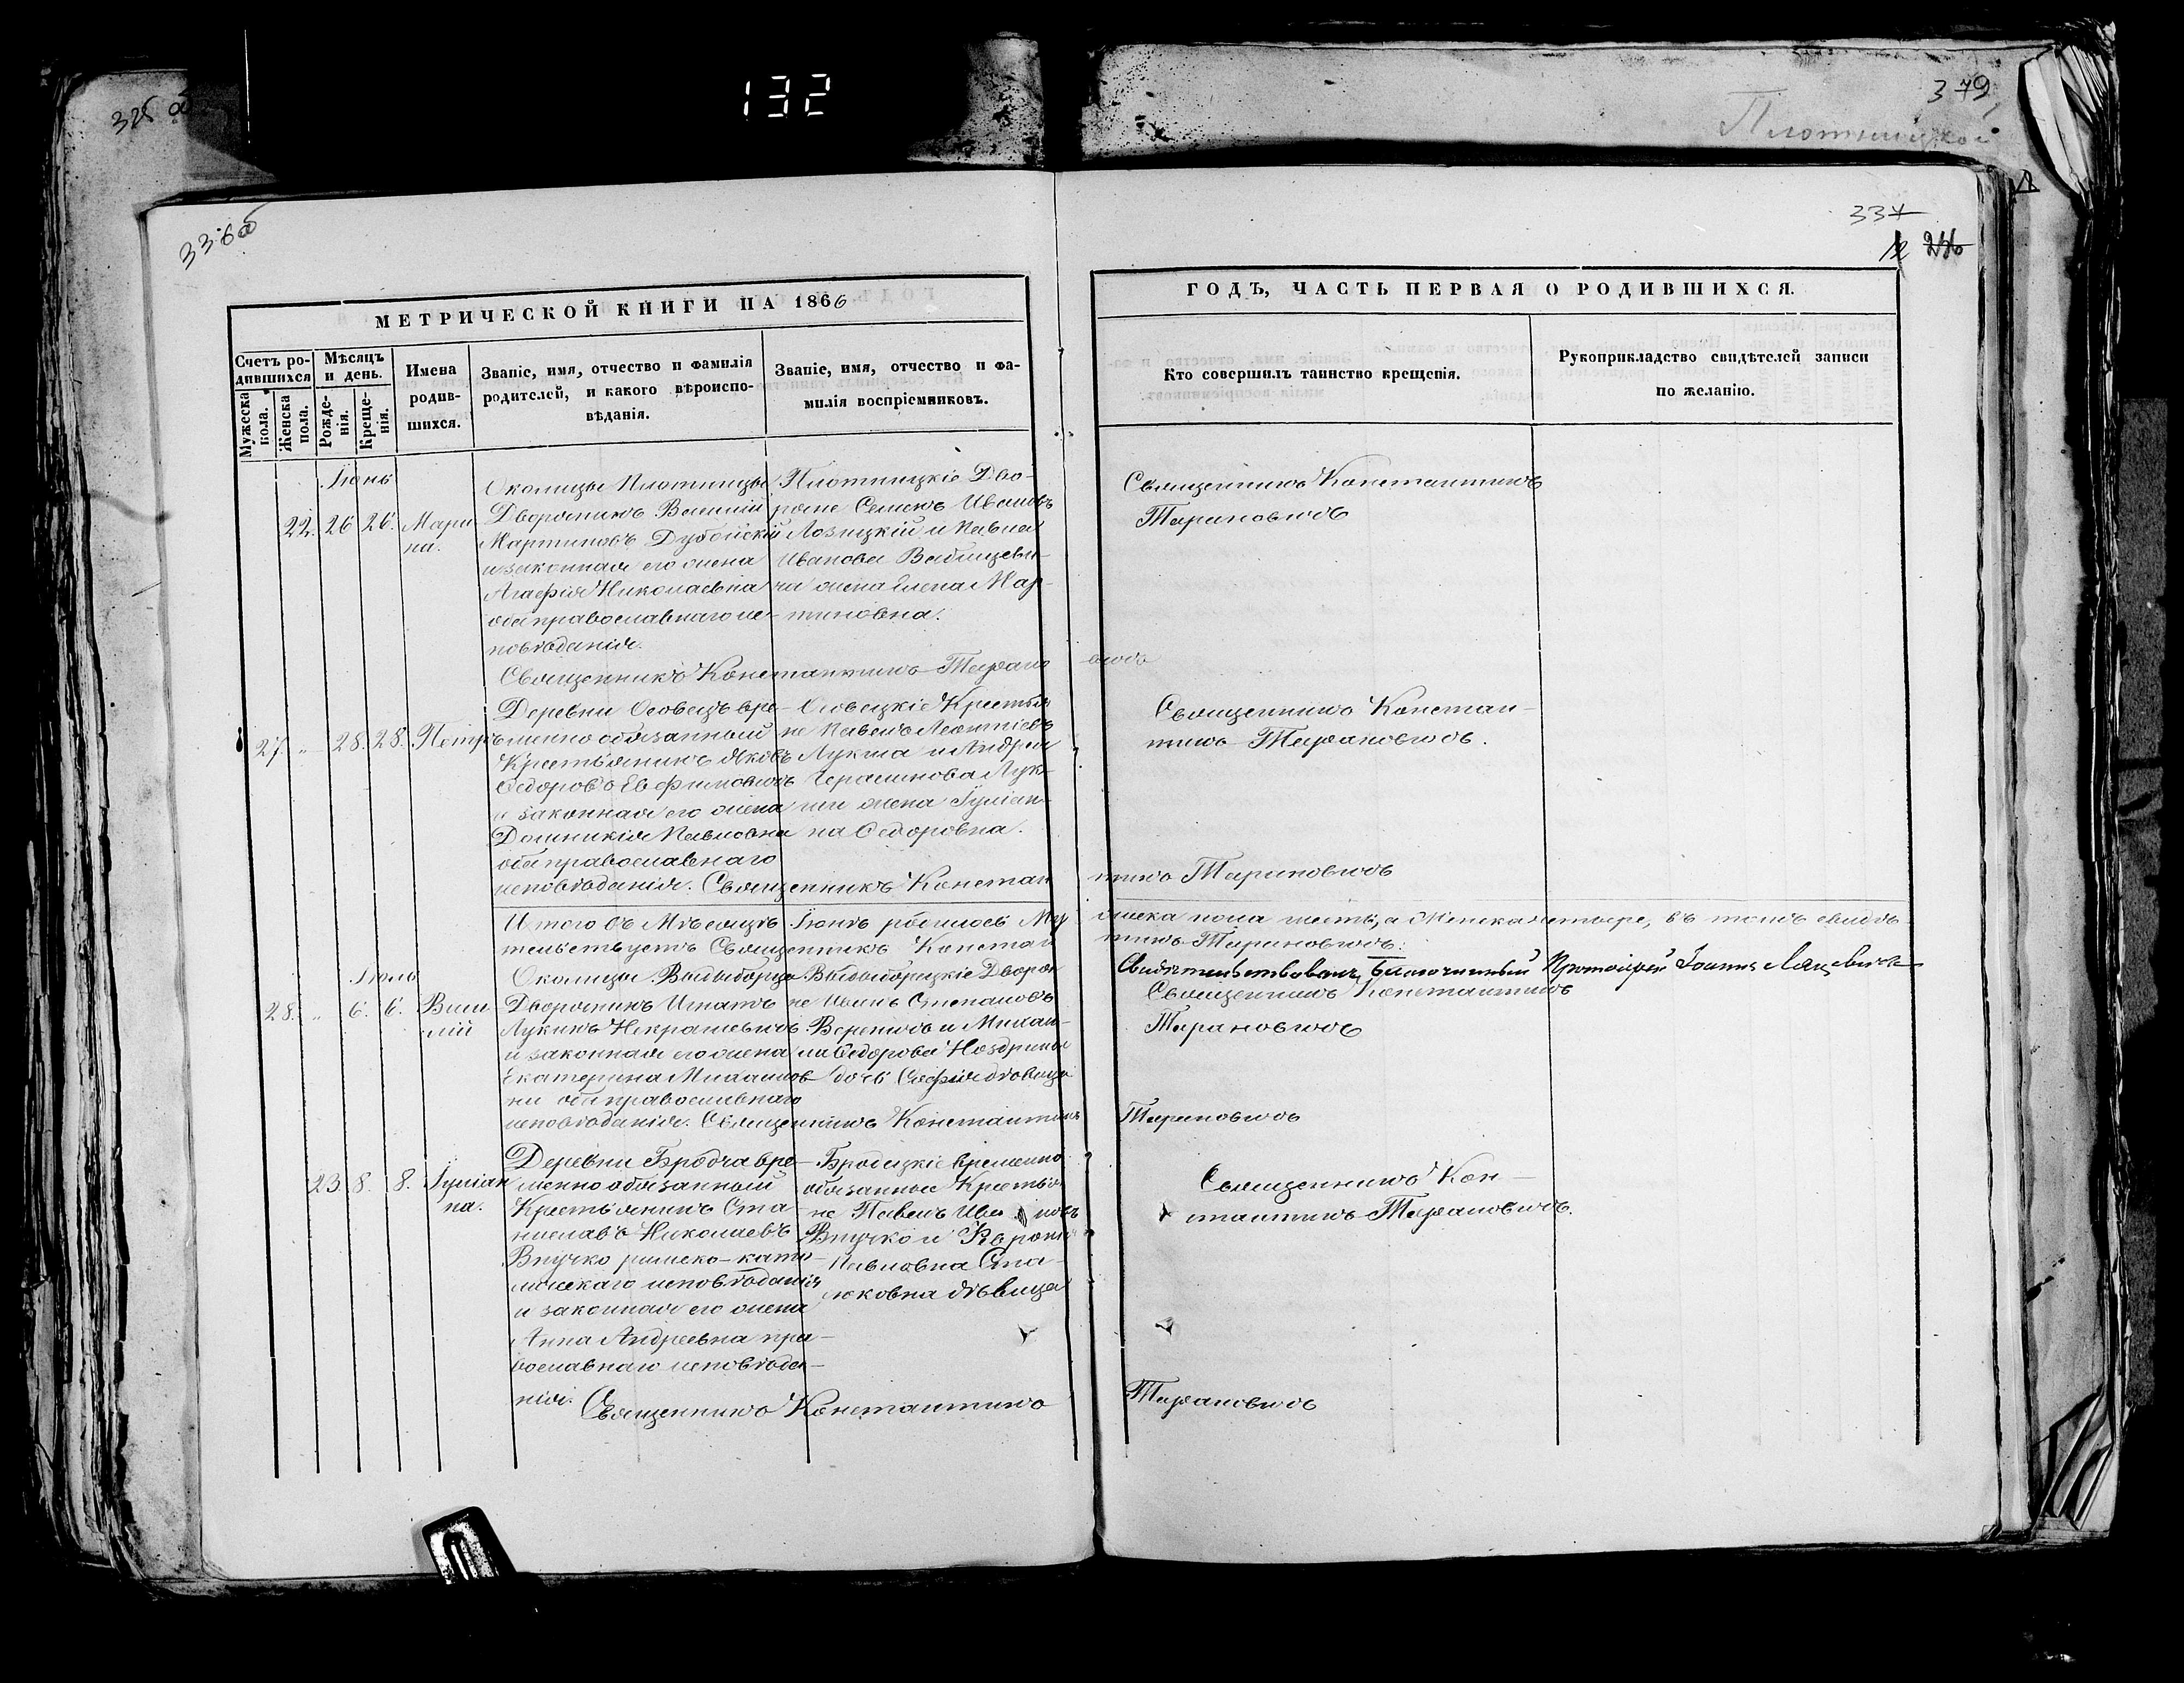 132
379
Плотницкой
336 об
337
12 246
МЕТРИЧЕСКОЙ КНИГИ НА 1866
ГОДЪ, ЧАСТЬ ПЕРВАЯ О РОДИВШИХСЯ.
Счетъ родившихся
Мѣсяцъ и день.
Мужеска пола.
Женска пола.
Рожденія.
Крещенія.
Имена родившихся.
Званіе, имя, отчество и фамилія
родителей, и какого вѣроиспо-
вѣданія.
Званіе, имя, отчество и фа-
милія воспріемниковъ.
Кто совершилъ таинство крещенія.
Рукоприкладство свидѣтелей записи
по желанію.
Іюнь
22. 26 26. Мари
на.
Околицы Плотницы
Дворянинъ Василій
Мартиновъ Дубойскій
и законная его жена
Агафія Николаевна
оба православнаго ис-
повѣданія.
Плотницкіе Дво-
ряне Семенъ Ивановъ
Лозицкій и Павла
Иванова
ча жена Елена Мар-
тиновна.
Священникъ Константинъ
Тарановичъ
Священникъ Константинъ Тарановичъ
27. „ 28. 28. Петръ
Деревни Осовецъ вре-
менно обязанный
Крестьянинъ Яковъ
Ѳедоровъ Евфимовичъ
и законная его жена
Домникія Павловна
оба православнаго
исповѣданія. Священникъ Константинъ Тарановичъ
Осовецкіе Крестья
не Павелъ Леонтіевъ
Лукша и Андрея
Герасимова Лук-
ши жена Іуліан-
на Ѳедоровна.
Священникъ Констан-
тинъ Тарановичъ.
Итого въ Мѣсяцѣ Іюнѣ родилось Му
жеска пола шесть, а Женска четыре, въ томъ свидѣ
тельствуетъ Священникъ Констан
тинъ Тарановичъ.
Свидѣтельствовалъ Благочинный Протоіерей Іоаннъ
Іюль
28. „ 6. 6. Васи
лій
Околицы
Дворянинъ Игнатъ
Лукинъ Некрашевичъ
и законная его жена
Екатерина Михайлов
на оба православнаго
исповѣданія. Священникъ Константинъ
Тарановичъ
Дворя
не Иванъ Степановъ
Вереничъ и Михаи-
ла Ѳедорова Ноздрина
дочь Софія дѣвица
Священникъ Константинъ
Тарановичъ
23. 8. 8. Іуліан
на.
Деревни Бродча вре-
менно обязанный
Крестьянинъ Ста
ниславъ Николаевъ
Внучко римско-като-
лическаго исповѣданія
и законная его жена
Анна Андреевна пра-
вославнаго исповѣда-
нія. Священникъ Константинъ
Тарановичъ
Бродецкіе временно
обязанные Крестья
не Павелъ Ивановъ
Внучко и
Павловна Ста-
сюковна дѣвица
Священникъ Кон-
стантинъ Тарановичъ.